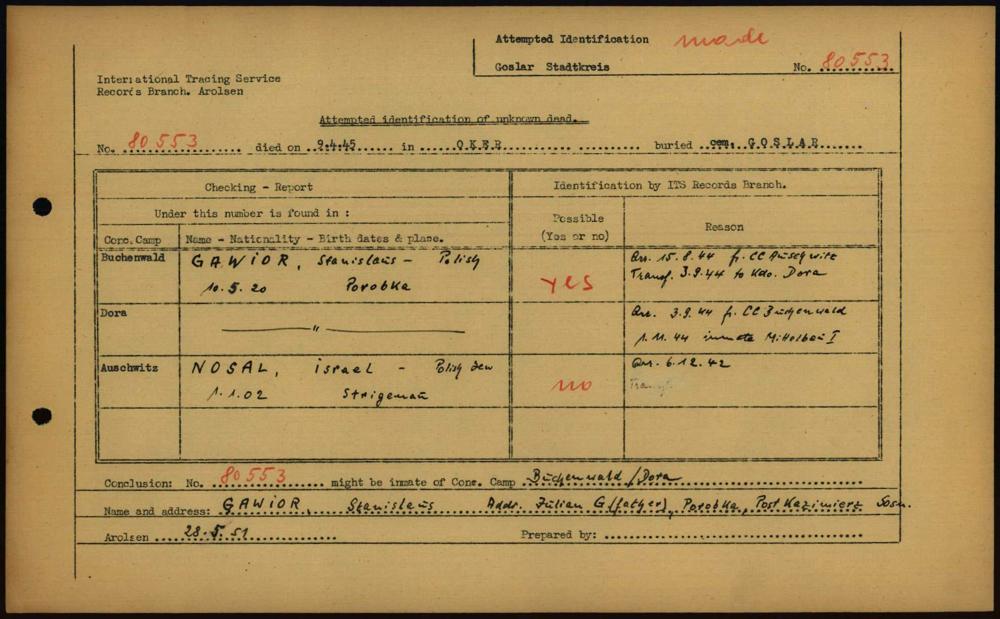 Attempted Identification made
Goslar Stadtkreis No. 80553
International Tracing Service
Records Branch. Arolsen
Attempted identification of unknown dead.
No. 80553 died on 9.4.45 in OKER buried cem. GOSLAR
Checking - Report Identification by ITS Records Branch.
Under this number is found in : Possible
(Yes or no) Reason
Conc. Camp Name - Nationality - Birth dates & place.
Buchenwald GAWIOR, Stanislaus - Polish Arr. 15.8.44 fr. CC Auschwitz
10.5.20 Porobka yes Transf. 3.9.44 to Kdo. Dora
Dora — " — Arr. 3.9.44 fr. CC Buchenwald
1.11.44 inmate Mittelbau I
Auschwitz NOSAL, Israel - Polish Jew Arr. 6.12.42
1.1.02 no Transf.
Conclusion: No. 80553 might be inmate of Conc. Camp Buchenwald / Dora
Name and address: GAWIOR, Stanislaus Addr. Julian G (father), Porobka, Post Kazimierz Sosn.
Arolsen 28.5.51 Prepared by: